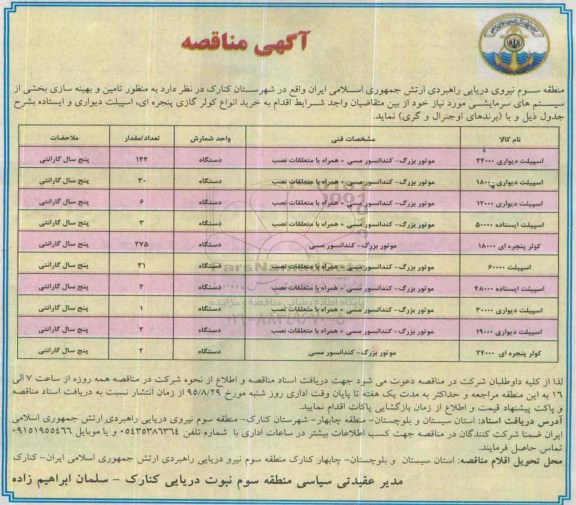 آگهی مناقصه
منطقه سوم نیروی دریایی راهبردی ارتش جمهوری اسلامی ایران واقع در شهرستان کنارک در نظر دارد به منظور تامین و بهینه سازی بخشی از
سیستم های سرمایشی مورد نیاز خود از بین متقاضیان واجد شرایط اقدام به خرید انواع کولر گازی پنجره ای، اسپیلت دیواری و ایستاده بشرح
جدول ذیل و با (برندهای اوجنرال و گری) نماید.
نام کالا مشخصات فنی واحد شمارش تعداد/مقدار ملاحضات
اسپیلت دیواری ۲۴۰۰۰ موتور بزرگ- کندانسور مسی + همراه با متعلقات نصب دستگاه ۱۴۴ پنج سال گارانتی
اسپیلت دیواری ۱۸۰۰۰ موتور بزرگ- کندانسور مسی + همراه با متعلقات نصب دستگاه ۳۰ پنج سال گارانتی
اسپیلت دیواری ۱۲۰۰۰ موتور بزرگ- کندانسور مسی + همراه با متعلقات نصب دستگاه ۶ پنج سال گارانتی
اسپیلت ایستاده ۵۰۰۰۰ موتور بزرگ- کندانسور مسی + همراه با متعلقات نصب دستگاه ۳ پنج سال گارانتی
کولر پنجره ای ۱۸۰۰۰ موتور بزرگ- کندانسور مسی دستگاه ۲۷۵ پنج سال گارانتی
اسپیلت ۶۰۰۰۰ موتور بزرگ- کندانسور مسی + همراه با متعلقات نصب دستگاه ۳۱ پنج سال گارانتی
اسپیلت ایستاده ۴۸۰۰۰ موتور بزرگ- کندانسور مسی + همراه با متعلقات نصب دستگاه ۲ پنج سال گارانتی
اسپیلت دیواری ۳۰۰۰۰ موتور بزرگ- کندانسور مسی + همراه با متعلقات نصب دستگاه ۱ پنج سال گارانتی
اسپیلت دیواری ۱۹۰۰۰ موتور بزرگ- کندانسور مسی + همراه با متعلقات نصب دستگاه ۲ پنج سال گارانتی
کولر پنجره ای ۲۴۰۰۰ موتور بزرگ- کندانسور مسی دستگاه ۲ پنج سال گارانتی
لذا از کلیه داوطلبان شرکت در مناقصه دعوت می شود جهت دریافت اسناد مناقصه و اطلاع از نحوه شرکت در مناقصه همه روزه از ساعت ۷ الی
۱۶ به این منطقه مراجعه و حداکثر به مدت یک هفته تا پایان وقت اداری روز شنبه مورخ ۹۵/۸/۲۹ از زمان انتشار نسبت به دریافت اسناد مناقصه
و پاکت پیشنهاد قیمت و اطلاع از زمان بازگشایی پاکات اقدام نمایید.
آدرس دریافت اسناد: استان سیستان و بلوچستان- منطقه چابهار- شهرستان کنارک- منطقه سوم نیروی دریایی راهبردی ارتش جمهوری اسلامی
ایران ضمنا شرکت کنندگان در مناقصه جهت کسب اطلاعات بیشتر در ساعات اداری با شماره تلفن ۰۵۴۳۵۳۸۶۳۶۴ و یا موبایل ۰۹۱۵۱۹۵۵۴۶۶
تماس حاصل فرمایند.
محل تحویل اقلام مناقصه: استان سیستان و بلوچستان- چابهار کنارک منطقه سوم نیرو دریایی راهبردی ارتش جمهوری اسلامی ایران- کنارک
مدیر عقیدتی سیاسی منطقه سوم نبوت دریایی کنارک - سلمان ابراهیم زاده